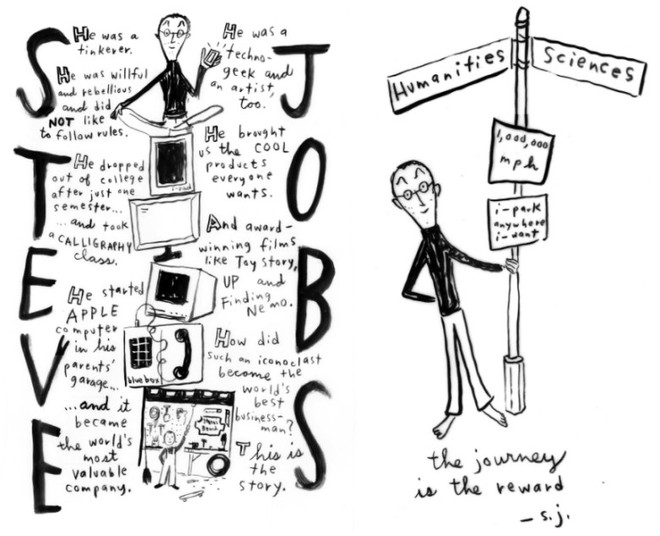 STEVE
He was a
tinkerer.
He was willful
and rebellious
and did
NOT like
to follow rules.
He dropped
out of college
after just one
semester...
...and took
a CALLIGRAPHY
class.
He started
APPLE
computer
in his
parents'
garage...
...and it
became
the world's
most
valuable
company.
blue box
He was a
techno-
geek and
an artist,
too.
He brought
us the COOL
products
everyone
wants.
And award-
winning films
like Toy Story,
UP and
Finding
Nemo.
How did
such an iconoclast
become the
world's
best
business-
man?
This is
the
story.
JOBS
Humanities
Sciences
1,000,000
mph
i-park
anywhere
i-want
the journey
is the reward
— s.j.